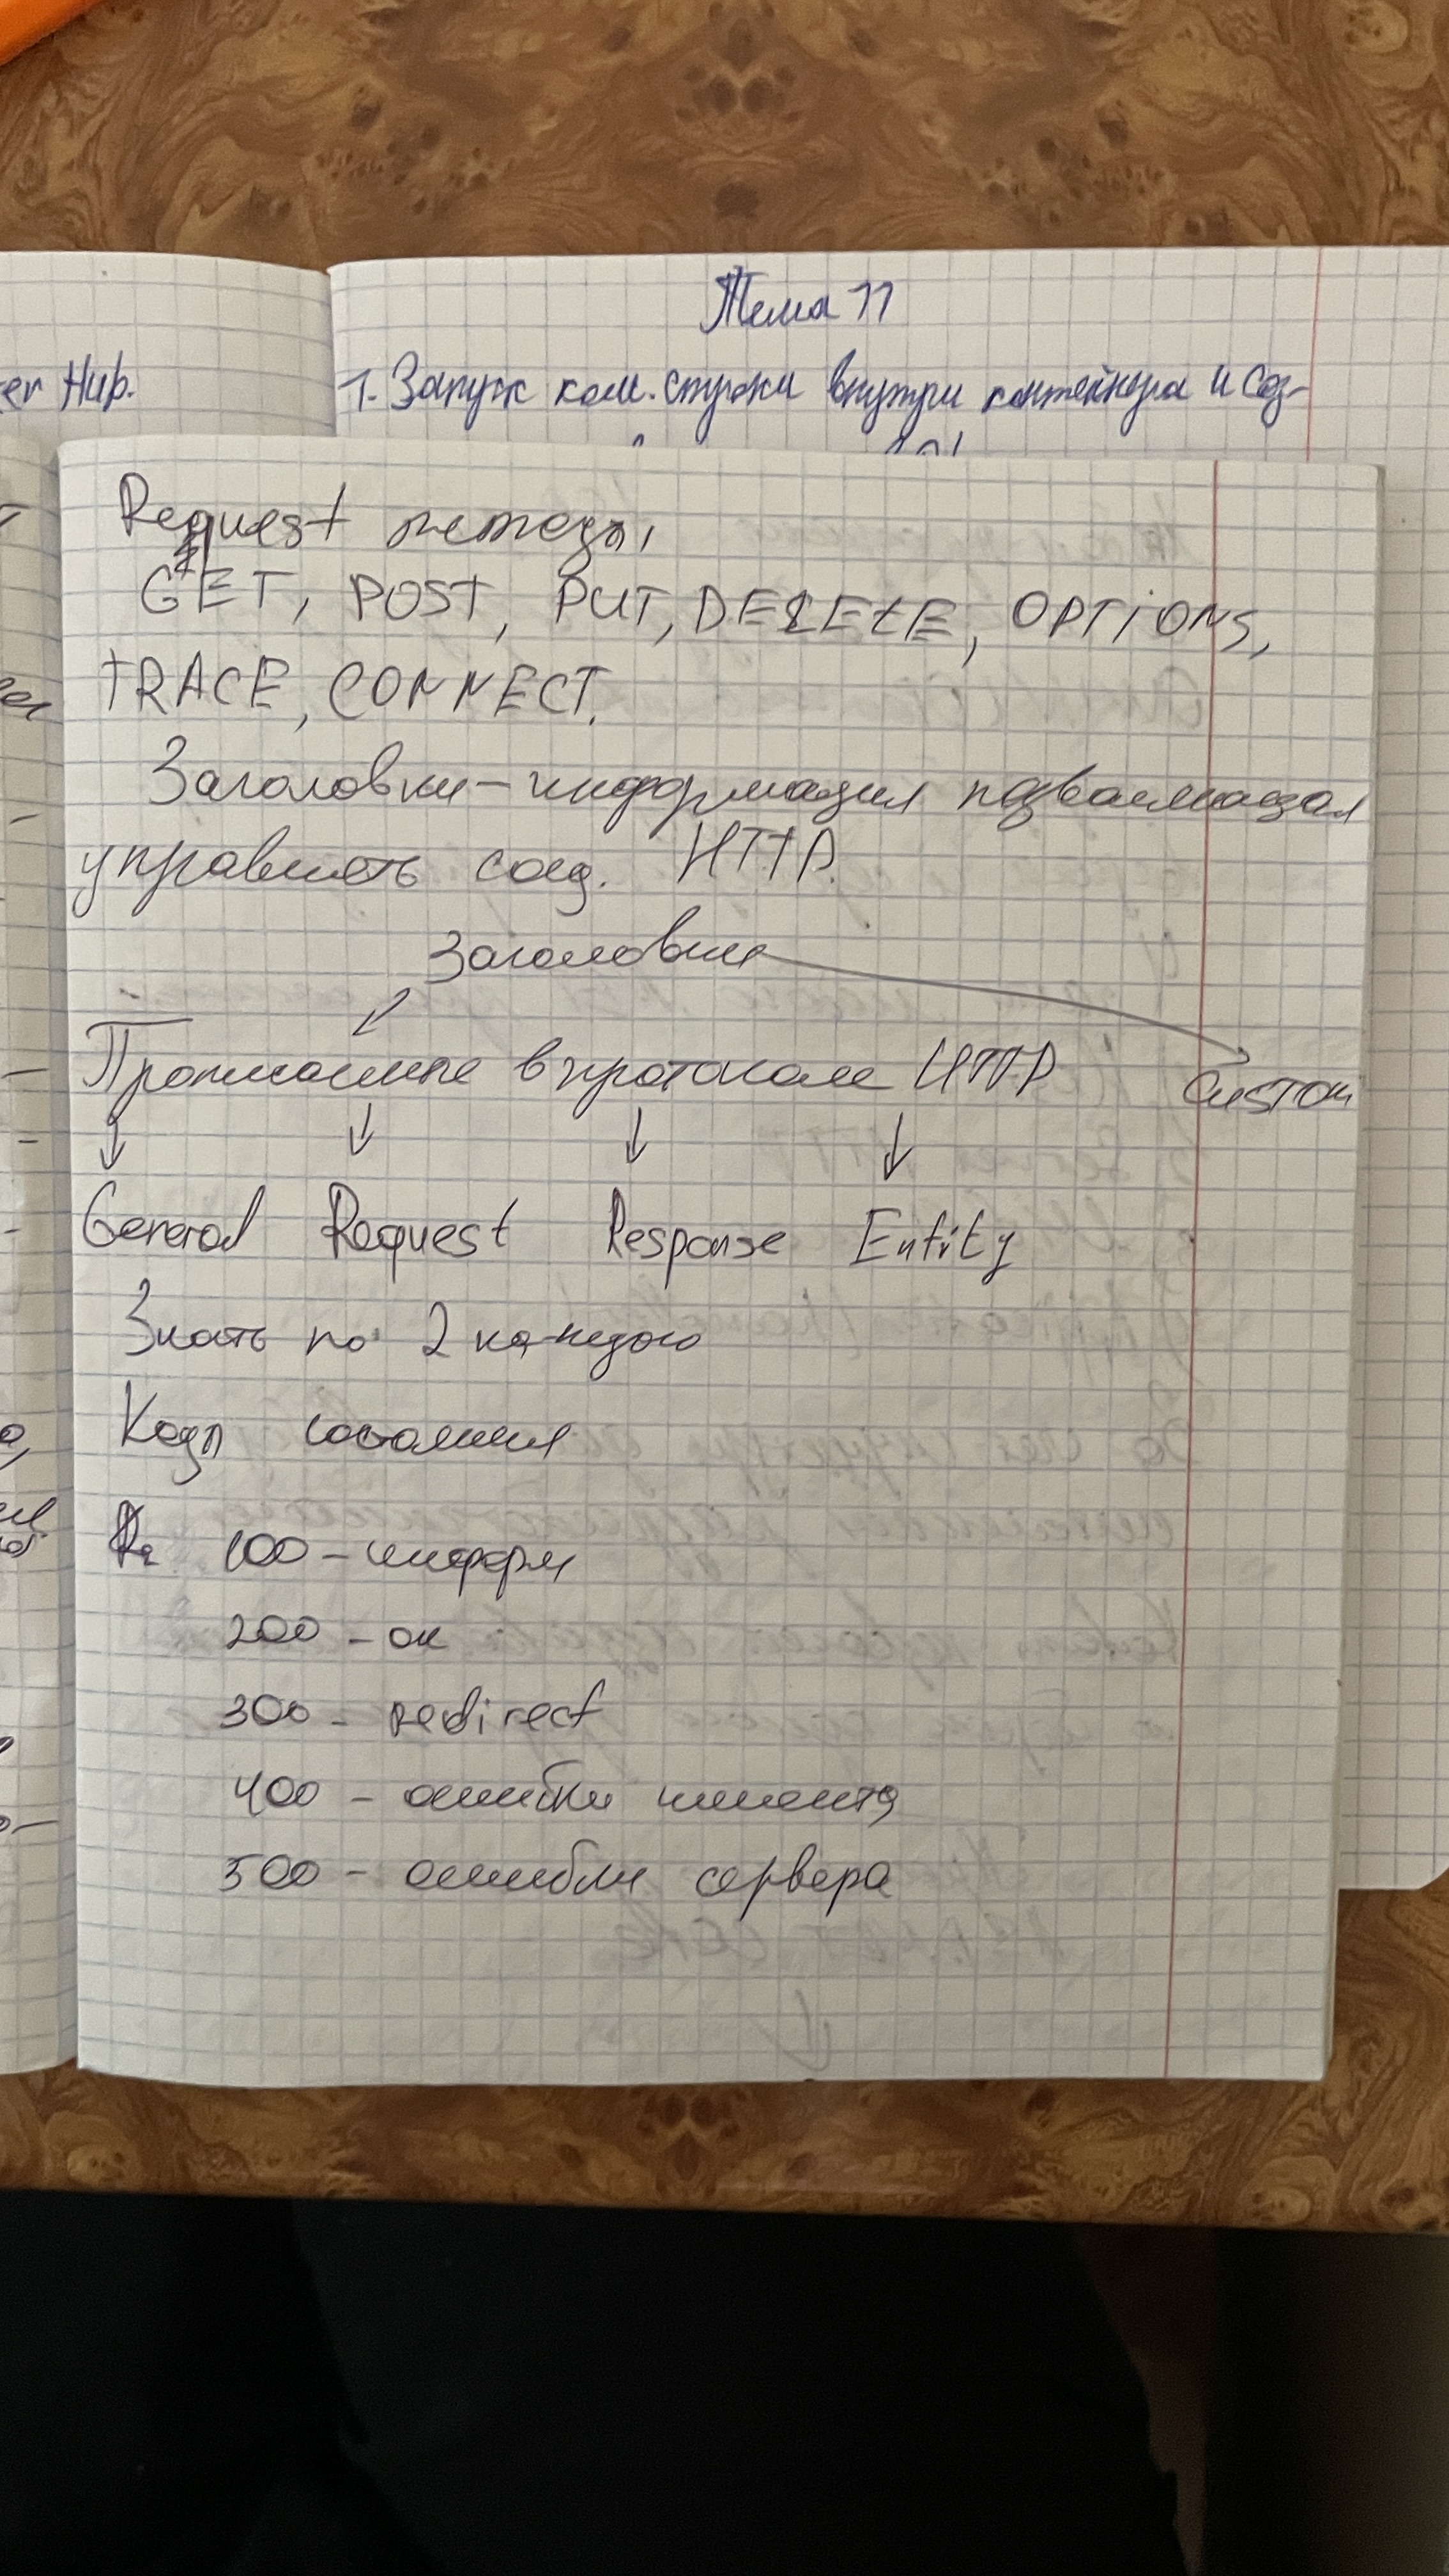 Тема 11
ker Hub.
1. Запуск ком. строки внутри контейнера и соз-
Request методы
GET, POST, PUT, DELETE, OPTIONS,
TRACE, CONNECT.
Заголовки – информация позволяющая
управлять соед. HTTP.
Заголовки
Прописанные в протоколе HTTP
custom
General Request Response Entity
Знать по 2 каждого
Коды состояния
100 – информ
200 – ок
300 – redirect
400 – ошибки клиента
500 – ошибки сервера